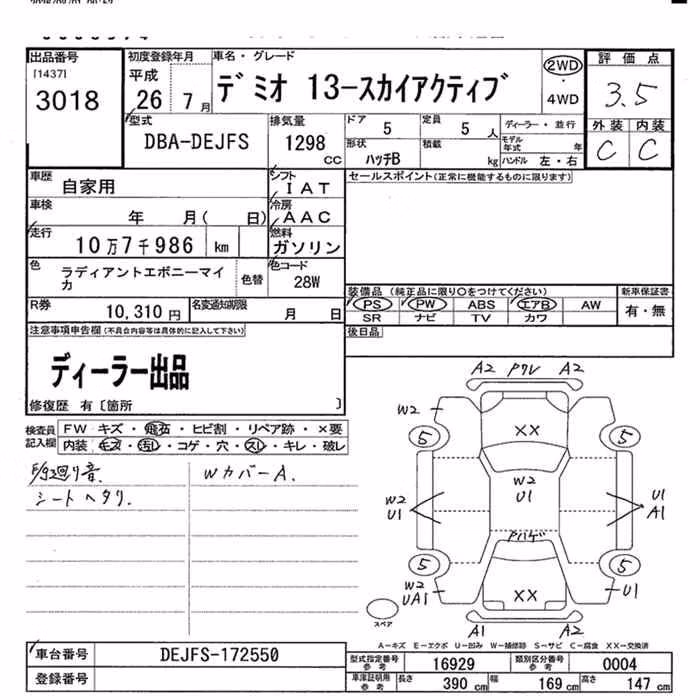 出品番号
[1437]
3018
初度登録年月
平成
26 年 7 月
車名・グレード
デミオ 13-スカイアクティブ
2WD
・
4WD
評価点
3.5
外装 内装
C C
型式
DBA-DEJFS
排気量
1298
CC
ドア 5
定員 5 人
ディーラー・並行
形状 ハッチB
積載 kg
モデル年式 年
ハンドル 左・右
車歴
自家用
シフト
IAT
セールスポイント(正常に機能するものに限ります)
車検
年 月( 日)
冷房
AAC
走行
10万7千986 km
燃料
ガソリン
色
ラディアントエボニーマイカ
色替
色コード
28W
装備品 (純正品に限り○をつけてください)
新車保証書
PS PW ABS エアB AW
有・無
SR ナビ TV カワ
R券
10,310円
名変通知期限
月 日
後日品
注意事項申告欄(不具合内容等は具体的に記入して下さい)
ディーラー出品
修復歴 有〔箇所 〕
検査員記入欄
FW キズ・飛石・ヒビ割・リペア跡・×要
内装 キズ・汚レ・コゲ・穴・スレ・キレ・破レ
F/S廻り音
シートヘタリ.
WカバーA.
A2 Pワレ A2
W2
5
XX
5
W2
U1
W2
U1
U1
A1
Pハゲ
5
5
W2
UA1
XX
U1
スペア
A1 A2
A-キズ E-エクボ U-凹み W-補修跡 S-サビ C-腐食 XX-交換済
車台番号
DEJFS-172550
登録番号
型式指定番号
参考
16929
類別区分番号
参考
0004
車庫証明用
参考
長さ 390 cm
幅 169 cm
高さ 147 cm